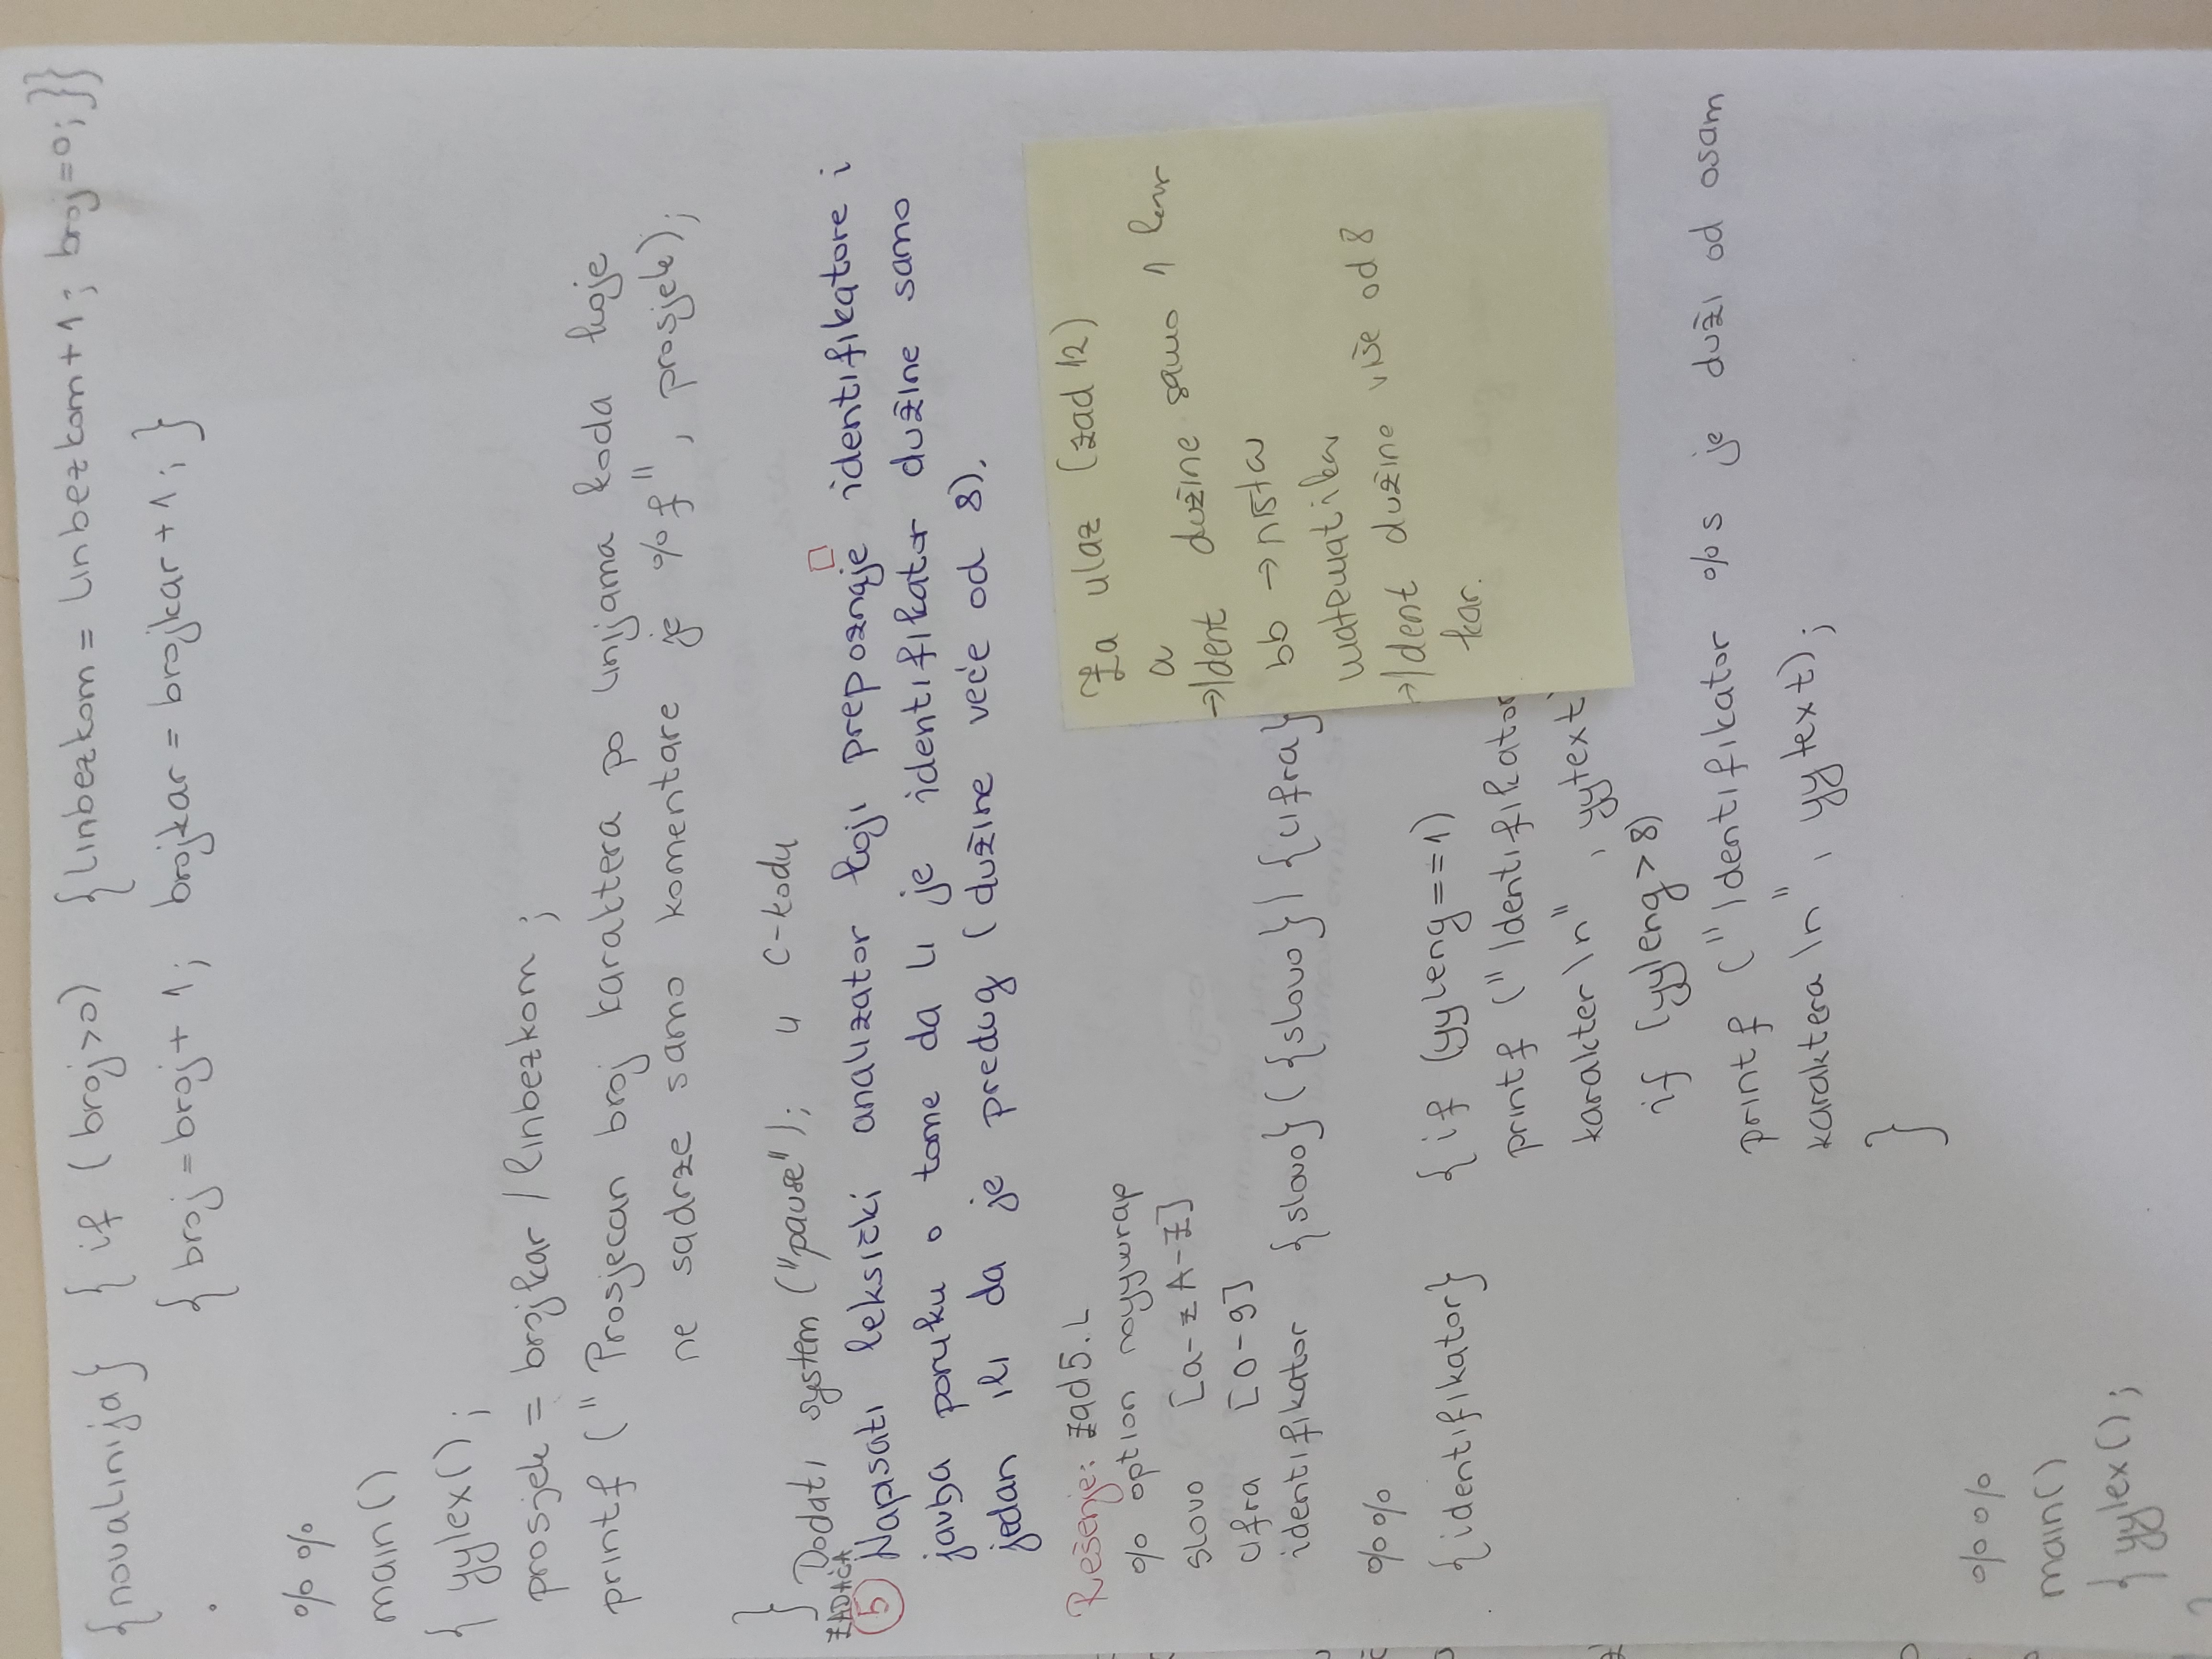 {novalinija} { if (broj>0) {linbezkom = linbezkom+1; broj=0;}}
. { broj=broj+1; brojkar = brojkar+1; }
%%
main()
{ yylex();
prosjek = brojkar / linbezkom ;
printf (" Prosjecan broj karaktera po linijama koda koje
ne sadrze samo komentare je %f", prosjek);
}
Dodati system ("pause"); u C-kodu
ZADAĆA
5 Napisati leksički analizator koji prepoznaje identifikatore i
javlja poruku o tome da li je identifikator dužine samo
jedan ili da je predug (dužine veće od 8).
Rešenje: zad5.L
% option noyywrap
slovo [a-zA-Z]
cifra [0-9]
identifikator {slovo}({slovo}|{cifra}
%%
{identifikator} { if (yyleng==1)
printf (" Identifikator
karakter \n" , yytext
if (yyleng>8)
printf ("Identifikator %s je duži od osam
karaktera \n", yytext);
}
%%
main()
{ yylex();
Za ulaz (zad 12)
a
→Ident dužine samo 1 kar
bb → ništa
matematika
→Ident dužine više od 8
kar.